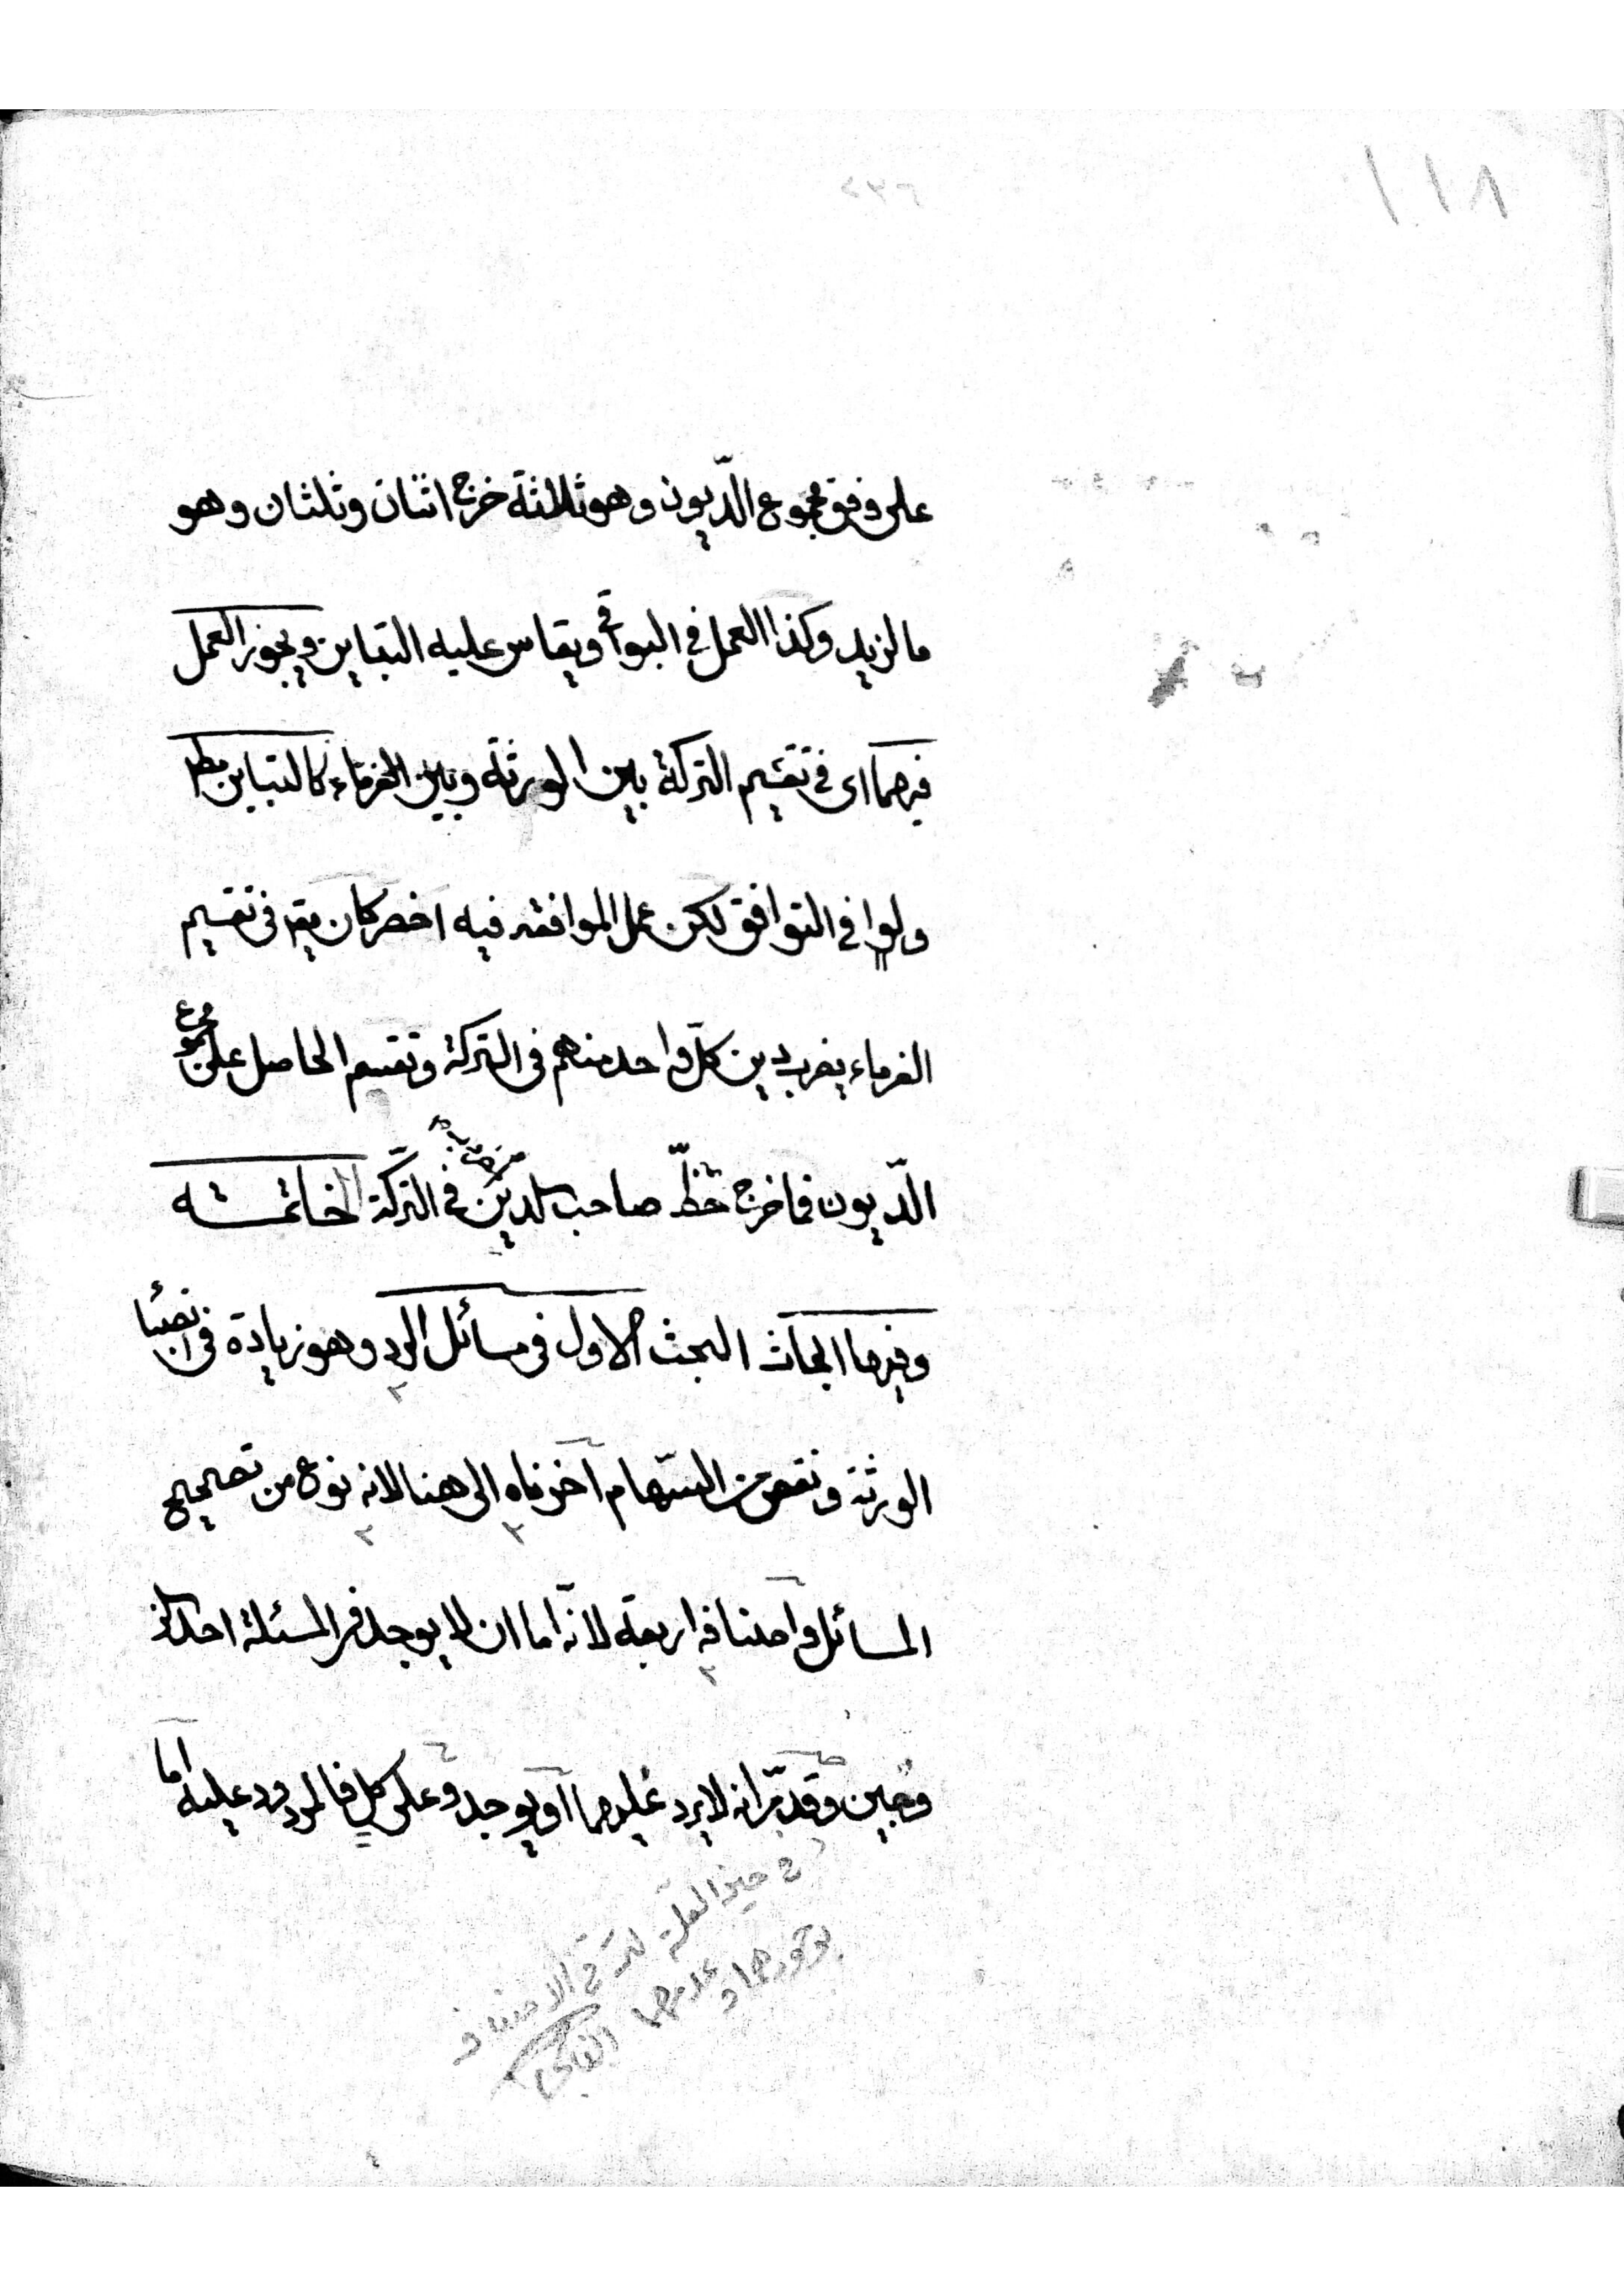 ١١٨
٢٣٦
على وفق مجموع الدّيون وهو ثلاثة خرج اثنان وثلثان وهو
ما لزيد وكذا العمل فى البواقى ويقاس عليه التباين ويجوز العمل
فيهما اى فى تقسيم التركة بين الورثة وبين الغرماء كالتباين مط
ولو فى التوافق لكن عمل الموافقة فيه اخصر كان يقم فى تقسيم
الغرماء يضرب دين كلّ واحد منهم فى التركة وتقسم الحاصل على مجموع
الدّيون فما خرج حظّ صاحب الدين فى التركة الخاتمه
وفيها ابحاث البحث الاول فى مسائل الرد وهو زيادة فى انصباء
الورثة ونقص من السّهام اخرناه الى هنا لانه نوع من تصحيح
المسائل واصنافه اربعة لانّه اما ان لا يوجد فى المسئلة احد
وجين وقد مّر انه لا يرد عليهما او يوجد وعلى كل فالمردود عليه اما